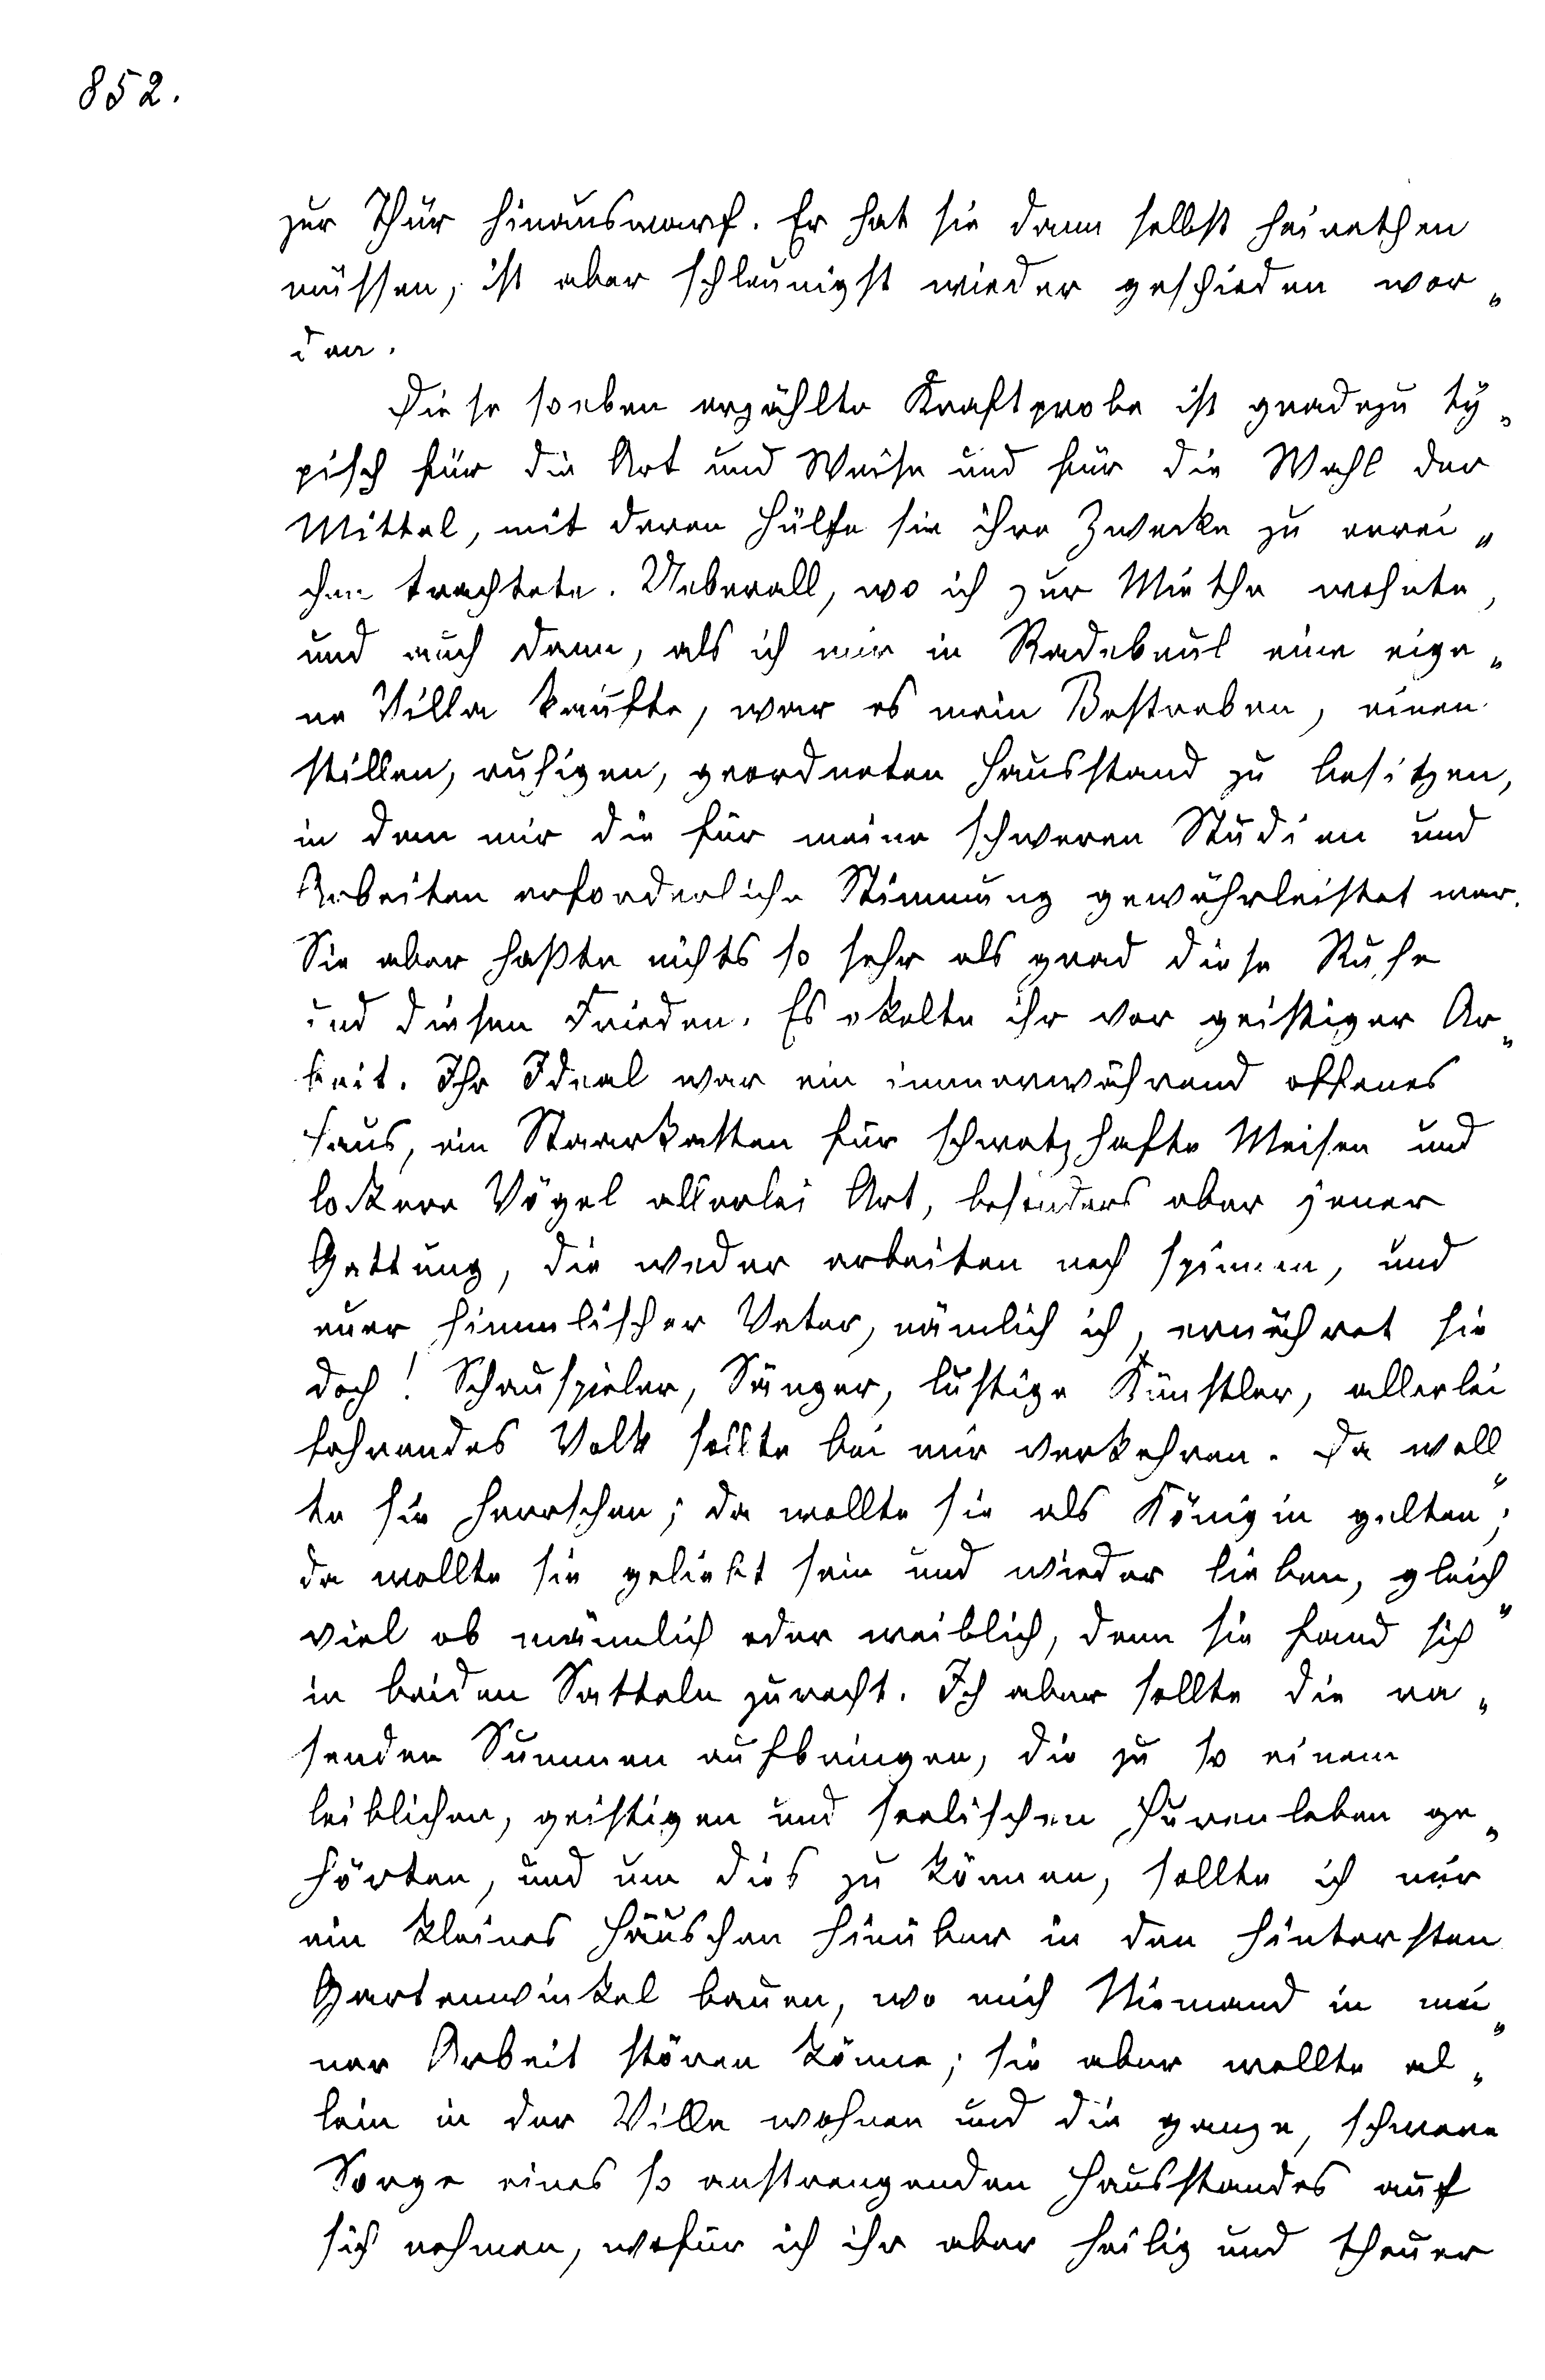 852.
zur Thür hinauswarf. Er hat sie dann selbst heirathen
müssen, ist aber schleunigst wieder geschieden wor„
den.
Diese soeben erzählte Kraftprobe ist gradezu ty„
pisch für die Art und Weise und für die Wahl der
Mittel, mit deren Hülfe sie ihre Zwecke zu errei„
chen trachtete. Ueberall, wo ich zur Miethe wohnte,
und auch dann, als ich mir in Radebeul eine eige„
ne Villa kaufte, war es mein Bestreben, einen
stillen, ruhigen, geordneten Hausstand zu besitzen,
in dem mir die für meine schweren Studien und
Arbeiten erforderliche Stimmung gewährleistet war.
Sie aber haßte nichts so sehr als grad diese Ruhe
und diesen Frieden. Es ekelte ihr vor geistiger Ar„
beit. Ihr Ideal war ein immerwährend offenes
Haus, ein Staarkasten für schwatzhafte Meisen und
lockere Vögel allerlei Art, besonders aber jener
Gattung, die weder arbeiten noch spinnen, und
euer himmlischer Vater, nämlich ich, ernähret sie
doch! Schauspieler, Sänger, lustige Künstler, allerlei
fahrendes Volk sollte bei mir verkehren. Da woll„
te sie herrschen; da wollte sie als Königin gelten;
da wollte sie geliebt sein und wieder lieben, gleich„
viel ob männlich oder weiblich, denn sie fand sich
in beiden Satteln zurecht. Ich aber sollte die ra„
senden Summen aufbringen, die zu so einem
leiblichen, geistigen und seelischen Hurenleben ge„
hörten, und um dies zu können, sollte ich mir
ein kleines Häuschen hinüber in den hintersten
Gartenwinkel bauen, wo mich Niemand in mei„
ner Arbeit stören könne; sie aber wollte al„
lein in der Villa wohnen und die ganze, schwere
Sorge eines so anstrengenden Hausstandes auf
sich nehmen, wofür ich ihr aber heilig und theuer